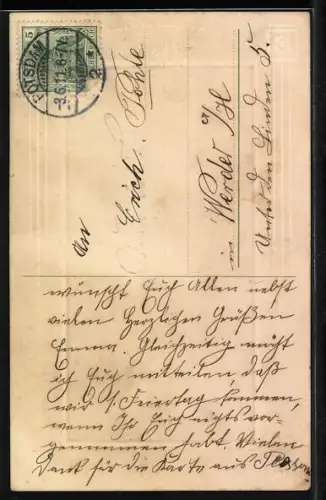 5
POTSDAM
3.6.11.6-7N.
2
An
Erich Pöhle
in Werder a/H
Unter den Linden 5.
wünscht Euch Allen nebst
vielen Herzlichen Grüßen
Emma. Gleichzeitig möcht
ich Euch mitteilen, daß
wir 1. Feiertag kommen,
wenn Ihr Euch nichts vor-
genommen habt. Vielen
Dank für die Karte aus